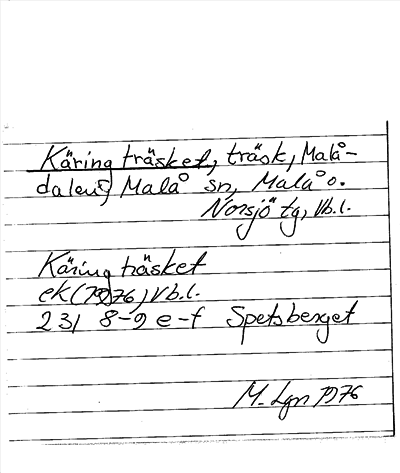 Käringträsket, träsk, Malå-
dalens, Malå sn, Malå o.
Norsjö tg, Vb.l.
Käringträsket
ek (1976) Vb.l.
231 8-9 e-f Spetsberget
M. Lgn 1976